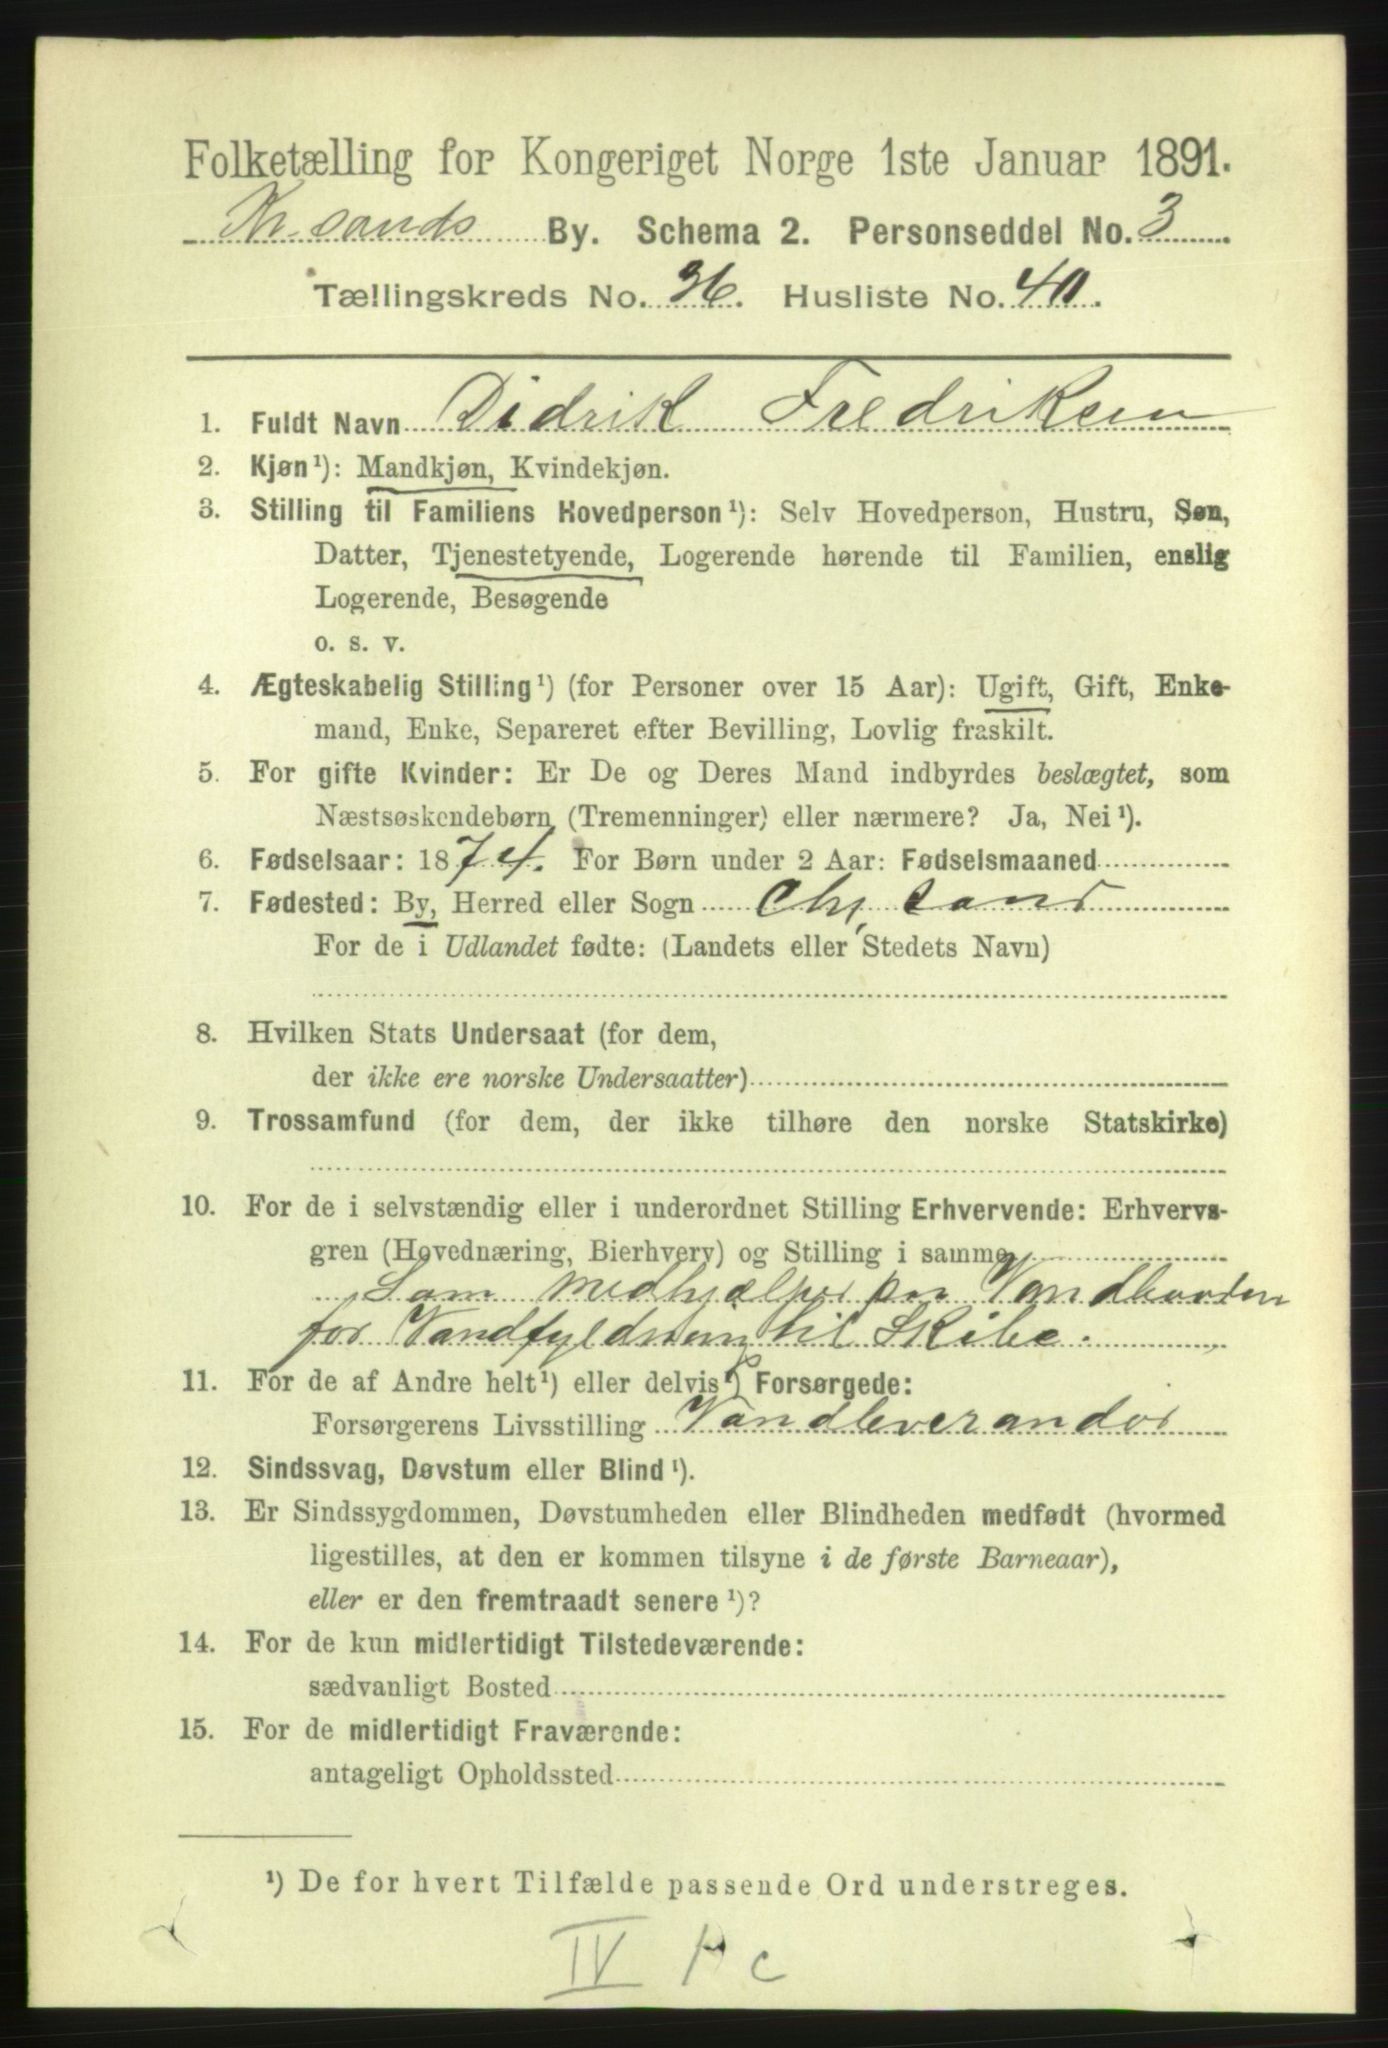 Folketælling for Kongeriget Norge 1ste Januar 1891.
Kr.sands By. Schema 2. Personseddel No. 3
Tællingskreds No. 36. Husliste No. 40.
1. Fuldt Navn Didrik Fredriksen
2. Kjøn¹): Mandkjøn, Kvindekjøn.
3. Stilling til Familiens Hovedperson¹): Selv Hovedperson, Hustru, Søn,
Datter, Tjenestetyende, Logerende hørende til Familien, enslig
Logerende, Besøgende
o. s. v.
4. Ægteskabelig Stilling¹) (for Personer over 15 Aar): Ugift, Gift, Enke-
mand, Enke, Separeret efter Bevilling, Lovlig fraskilt.
5. For gifte Kvinder: Er De og Deres Mand indbyrdes beslægtet, som
Næstsøskendebørn (Tremenninger) eller nærmere? Ja, Nei¹).
6. Fødselsaar: 1874. For Børn under 2 Aar: Fødselsmaaned
7. Fødested: By, Herred eller Sogn Chr, sand
For de i Udlandet fødte: (Landets eller Stedets Navn)
8. Hvilken Stats Undersaat (for dem,
der ikke ere norske Undersaatter)
9. Trossamfund (for dem, der ikke tilhøre den norske Statskirke)
10. For de i selvstændig eller i underordnet Stilling Erhvervende: Erhvervs-
gren (Hovednæring, Bierhverv) og Stilling i samme
Som medhjælper paa Vandbaaden
for Vandfyldning til Skibe.
11. For de af Andre helt¹) eller delvis¹) Forsørgede:
Forsørgerens Livsstilling Vandleverandør
12. Sindssvag, Døvstum eller Blind¹).
13. Er Sindssygdommen, Døvstumheden eller Blindheden medfødt (hvormed
ligestilles, at den er kommen tilsyne i de første Barneaar),
eller er den fremtraadt senere¹)?
14. For de kun midlertidigt Tilstedeværende:
sædvanligt Bosted
15. For de midlertidigt Fraværende:
antageligt Opholdssted
¹) De for hvert Tilfælde passende Ord understreges.
IV c